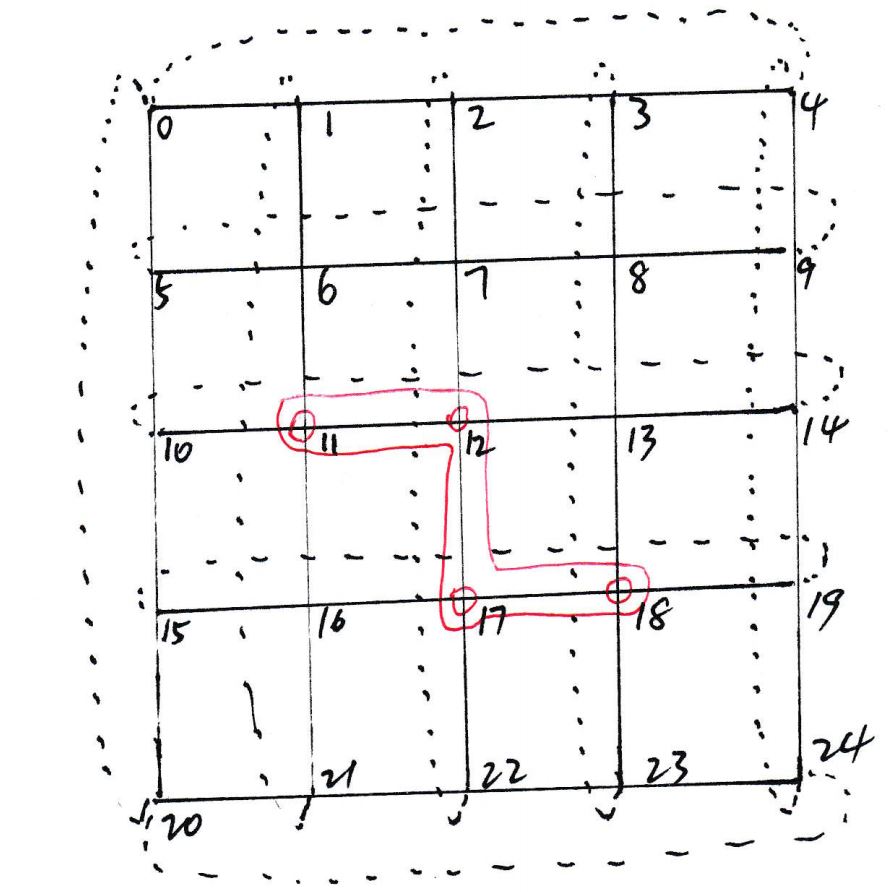 0 1 2 3 4
5 6 7 8 9
10 11 12 13 14
15 16 17 18 19
20 21 22 23 24